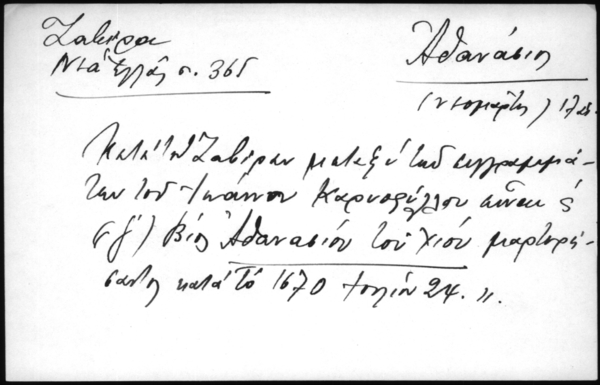 Ζαβίρα
Νέα Ἑλλάς σ. 365
Ἀθανάσιος
(νεομάρτυς) 17
Κατὰ τὸν Ζαβίραν μεταξὺ τῶν συγγραμμά-
των τοῦ Ἰωάννου Καρυοφύλλου εἶναι ὁ
(ζ') Βίος Ἀθανασίου τοῦ Χίου μαρτυρή-
σαντος κατὰ τὸ 1670 Ἰουλίου 24.